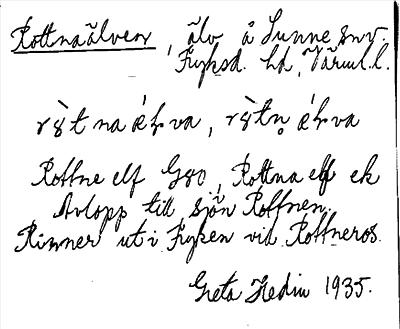 Rottnaälven, älv å Sunne snv.
Fryksd. hd, Värml. l.
Rottne elf G80, Rottna elf ek
Avlopp till sjön Rottnen.
Rinner ut i Fryken vid Rottneros.
Greta Hedin 1935.